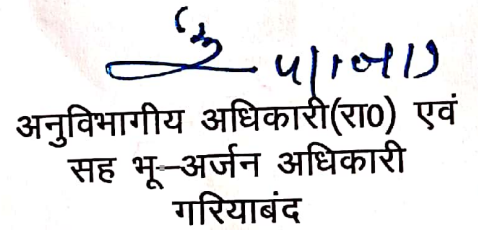 अनुविभागीय अधिकारी(रा0) एवं
सह भू-अर्जन अधिकारी
गरियाबंद